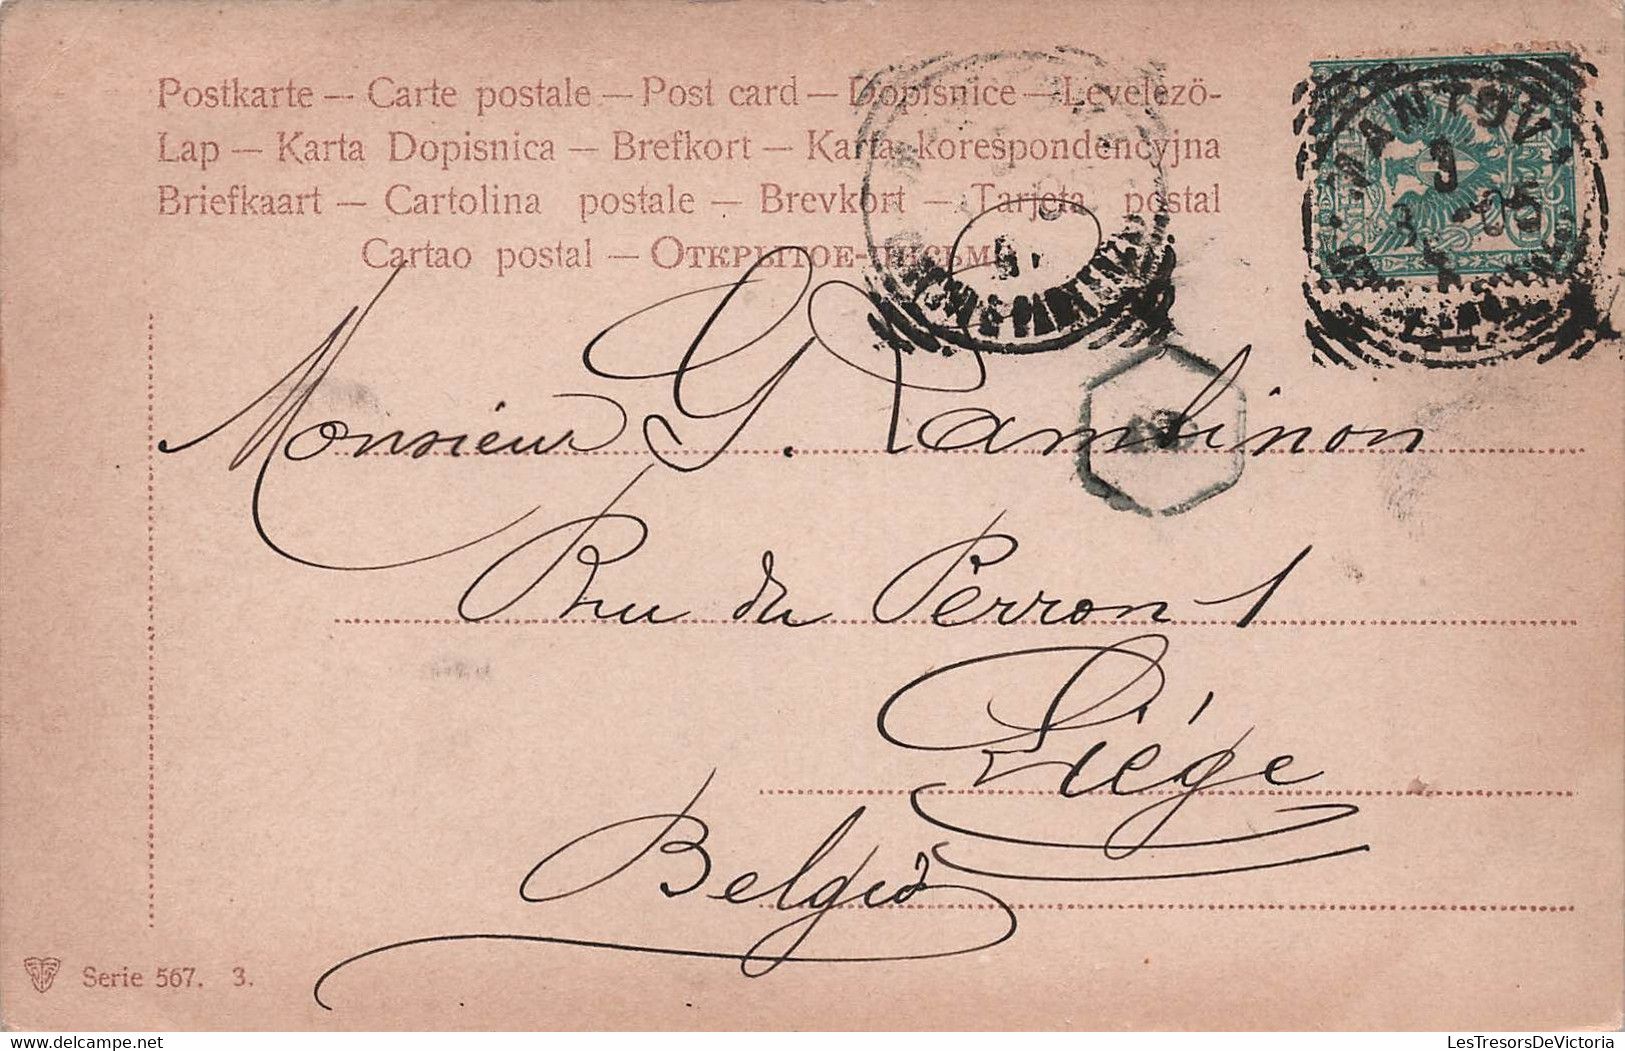 Postkarte — Carte postale — Post card — Dopisnice — Levelezö-
Lap — Karta Dopisnica — Brefkort — Karta korespondencyjna
Briefkaart — Cartolina postale — Brevkort — Tarjeta postal
Cartao postal — Открытое письмо
MANTOV
3
05
PARTENZA
Monsieur G. Rambinon
Rue du Perron 1
Liége
Belgio
Serie 567. 3.
LesTresorsDeVictoria